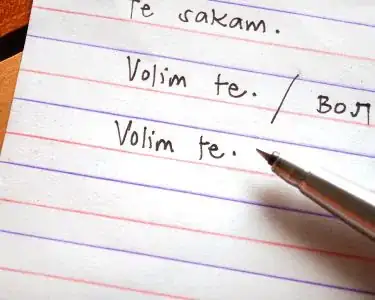 Te sakam.
Volim te. / Вол
Volim te.